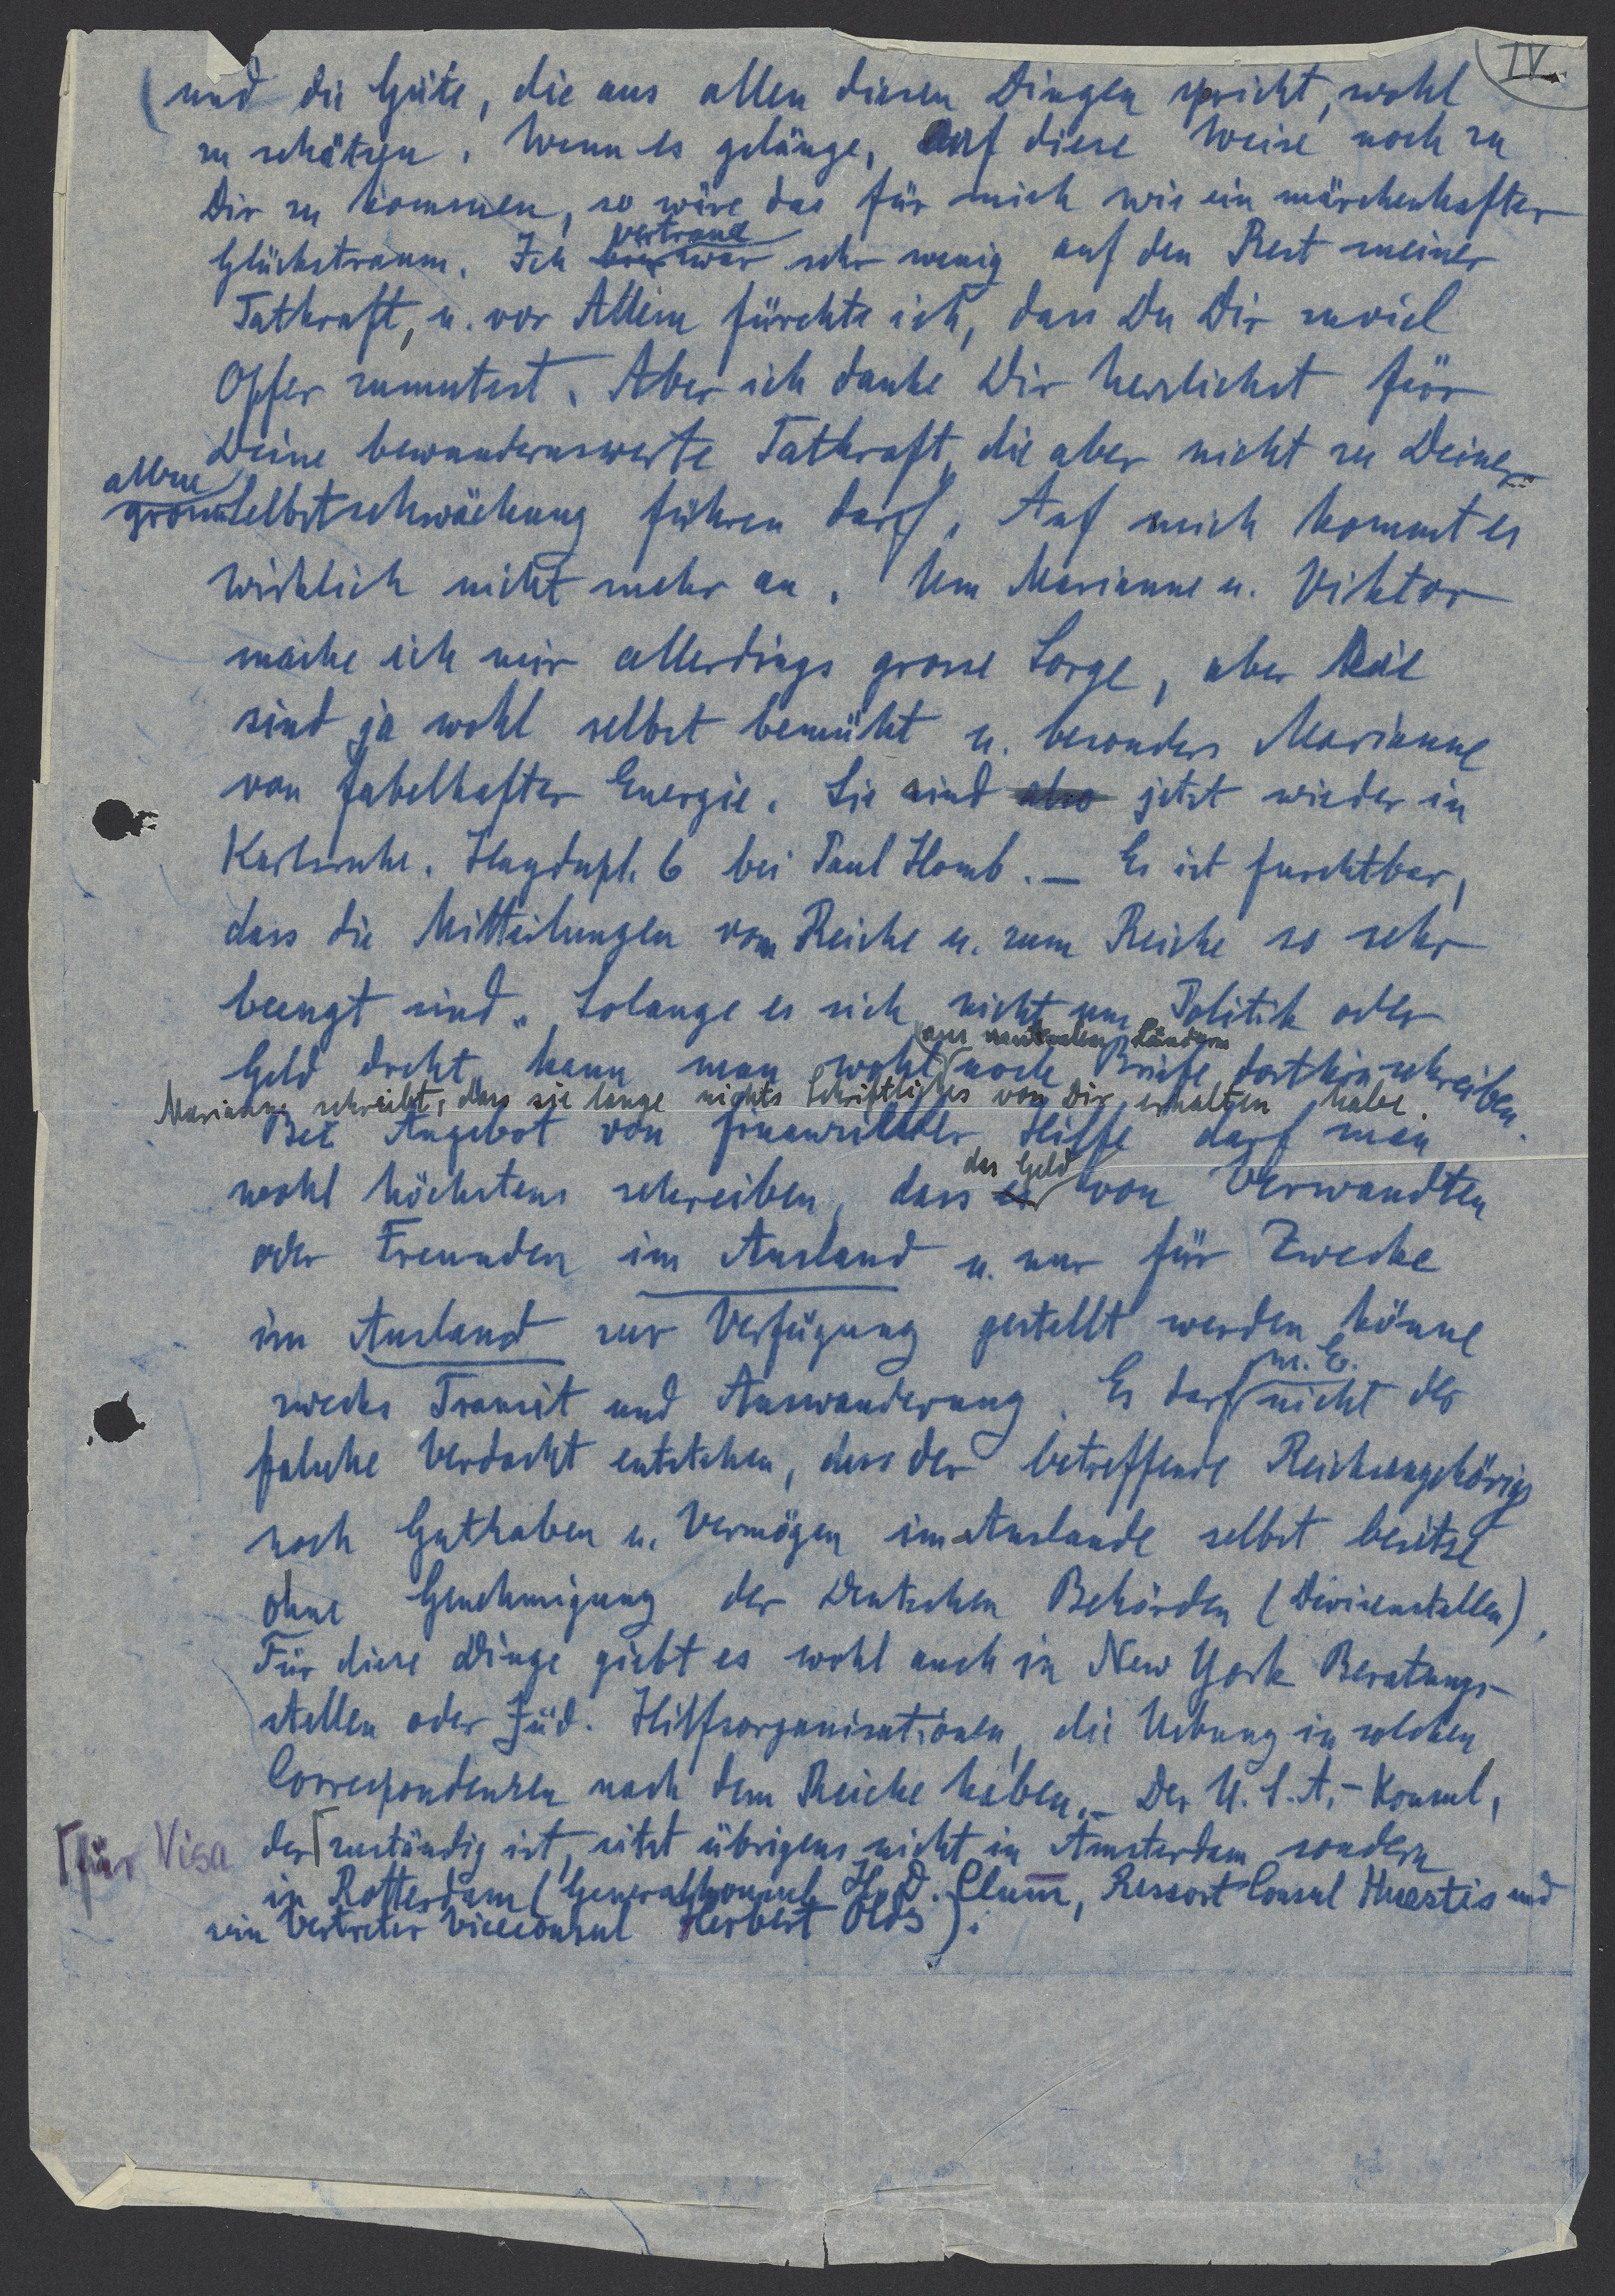 IV.
und die Güte, die aus allen diesen Dingen spricht, wohl
zu schätzen. Wenn es gelänge, auf diese Weise noch zu
Dir zu kommen, so wäre das für mich wie ein märchenhafter
Glückstraum. Ich vertraue zwar sehr wenig auf den Rest meiner
Tatkraft, u. vor Allem fürchte ich, dass Du Dir zuviel
Opfer zumutest. Aber ich danke Dir herzlichst für
Deine bewundernswerte Tatkraft, die aber nicht zu Deiner
Selbstschwächung führen darf. Auf mich kommt es
wirklich nicht mehr an. Um Marianne u. Viktor
mache ich mir allerdings grosse Sorge, aber die
sind ja wohl selbst bemüht u. besonders Marianne
von fabelhafter Energie. Sie sind also jetzt wieder in
Karlsruhe. Haydnpl. 6 bei Paul Homb. — Es ist furchtbar,
dass die Mitteilungen vom Reiche u. zum Reiche so sehr
beengt sind. Solange es sich nicht um Politik oder
aus neutralen Ländern
Geld dreht, kann man wohl noch Briefe dorthin schreiben.
Marianne schreibt, dass sie lange nichts Schriftliches von Dir erhalten habe.
Bei Angebot von finanzieller Hilfe darf man
das Geld
wohl höchstens schreiben, dass es von Verwandten
oder Freunden im Ausland u. nur für Zwecke
im Ausland zur Verfügung gestellt werden könne
m. E.
zwecks Transit und Auswanderung. Es darf nicht der
falsche Verdacht entstehen, dass der betreffende Reichsangehörige
noch Guthaben u. Vermögen im Auslande selbst besitze
ohne Genehmigung der Deutschen Behörden (Devisenstellen).
Für diese Dinge giebt es wohl auch in New York Beratungs-
stellen oder Jüd. Hilfsorganisationen, die Uebung in solchen
Correspondenzen nach dem Reiche haben. — Der U.S.A.-Konsul,
für Visa
der zuständig ist, sitzt übrigens nicht in Amsterdam sondern
in Rotterdam (Generalkonsul H. D. Clum, Ressort Consul Huestis und
sein Vertreter Viceconsul Herbert Olds).